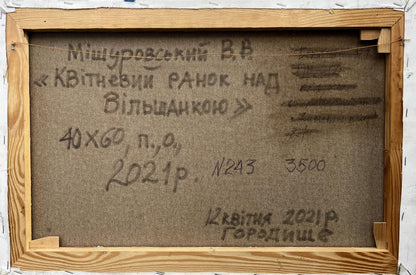 Мішуровський В.В.
«Квітневий ранок над
Вільшанкою»
40х60, п.,о.,
2021р. N243 3500
12 квітня 2021р.
Городище